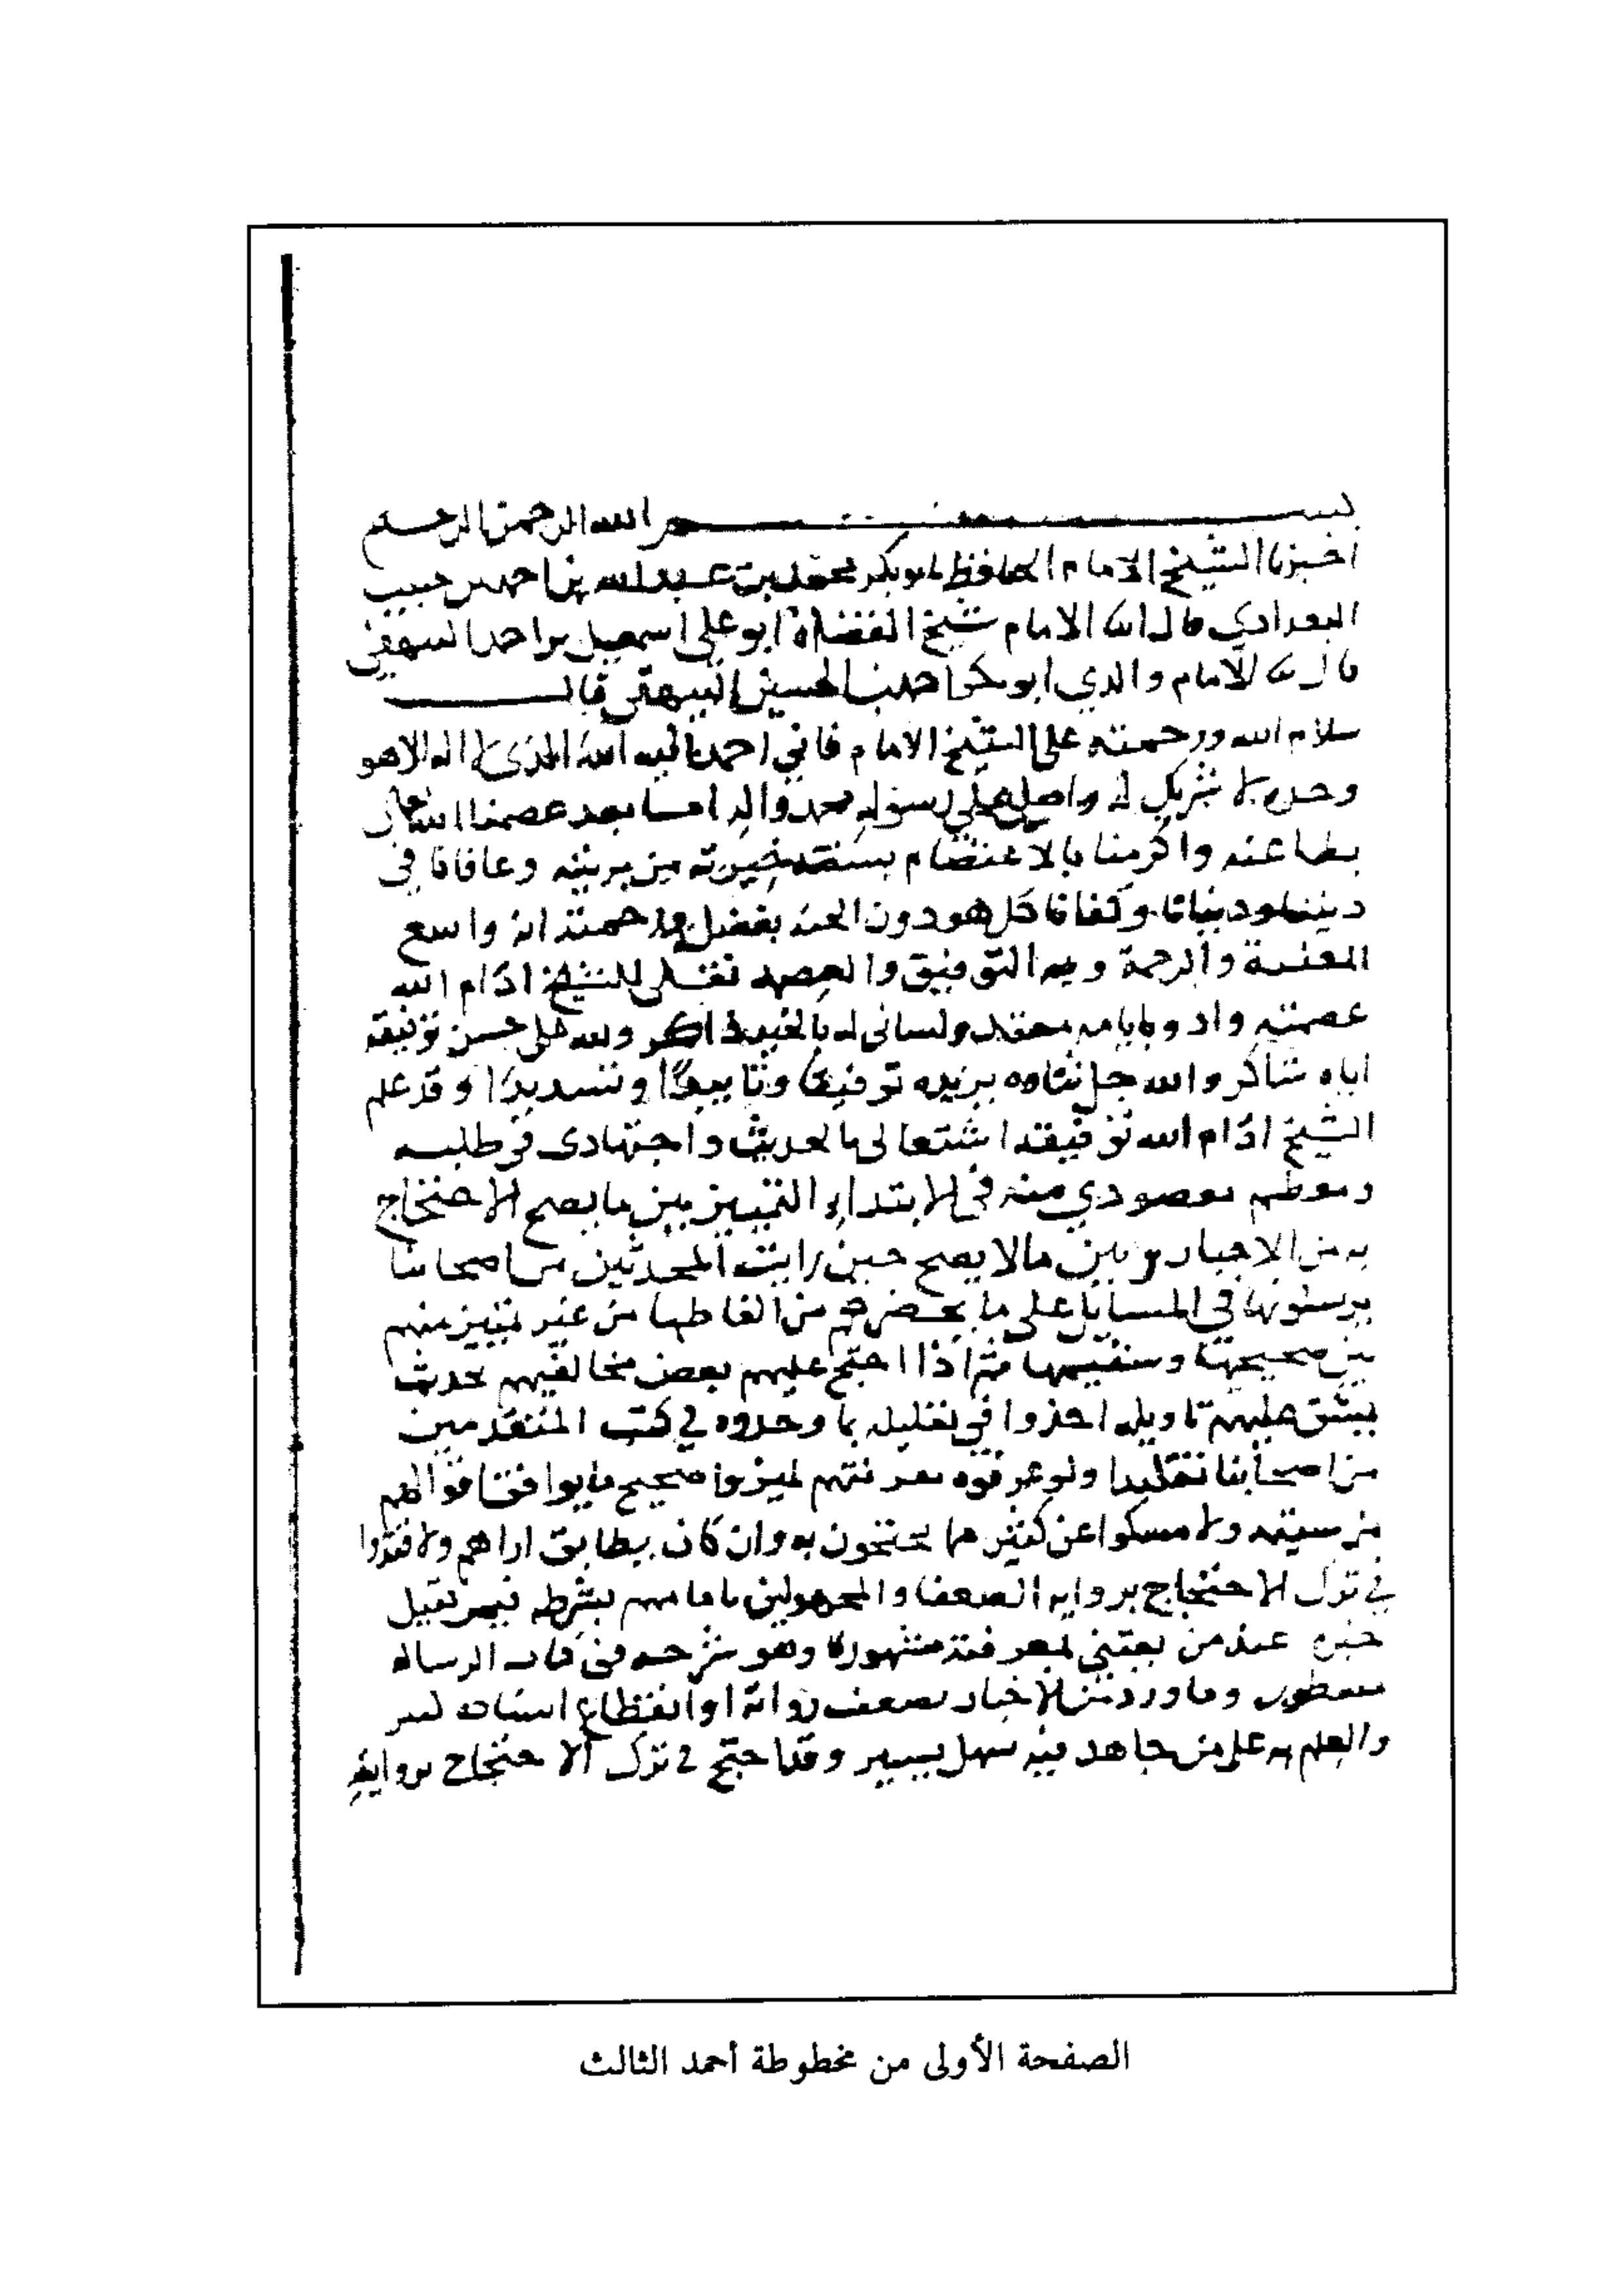 بسم الله الرحمن الرحيم
اخبرنا الشيخ الامام الحافظ ابو بكر محمد بن عبد الله بن احمد بن حبيب
البغدادي قال انا الامام شيخ القضاة ابو علي اسمعيل بن احمد البيهقي
قال انا الامام والدي ابو بكر احمد بن الحسين البيهقي قال
سلام الله ورحمته على الشيخ الامام فاني احمد اليه الله الذي لا اله الا هو
وحده لا شريك له واصلي على رسوله محمد واله اما بعد عصمنا الله
بطاعته واكرمنا بالاعتصام بسنة خيرته من بريته وعافانا في
ديننا ودنيانا وكفانا كل هو دون الجنة بفضله ورحمته انه واسع
المغفرة والرحمة وبه التوفيق والعصمة فقلبي للشيخ ادام الله
عصمته وايد بايامه معتقد ولساني له بالخير ذاكر ولله على حسن توفيقه
اياه شاكر والله جل ثناوه يزيده توفيقا وتاييدا وتسديدا وقد علم
الشيخ ادام الله توفيقه اشتغالي بالحديث واجتهادي في طلبه
ومعظم مقصودي منه في الابتداء التمييز بين ما يصح الاحتجاج
به من الاخبار وبين مالا يصح حين رايت المحدثين من اصحابنا
يرسلونها في المسايل على ما يحضرهم من الفاظها من غير تمييز منهم
بين صحيحها وسقيمها ثم اذا احتج عليهم بعض مخالفيهم بحديث
يشق عليهم تاويله اخذوا في تعليله بما وجدوه في كتب المتقدمين
من اصحابنا تقليدا ولو عرفوه معرفتهم لميزوا صحيح ما يوافق اقوالهم
من سقيمه ولامسكوا عن كثير مما يحتجون به وان كان يطابق اراهم ولاقتدوا
في ترك الاحتجاج برواية الضعفا والمجهولين بامامهم بشرطه فيمن تقبل
خبره عند من يعتني بمعرفته مشهورة وهو بشرحه في كتاب الرسالة
مسطور وما ورد من الاخبار بضعف رواته او انقطاع اسناده كثير
والعلم به على من جاهد فيه سهل يسير وقد احتج في ترك الاحتجاج برواية
الصفحة الأولى من مخطوطة أحمد الثالث